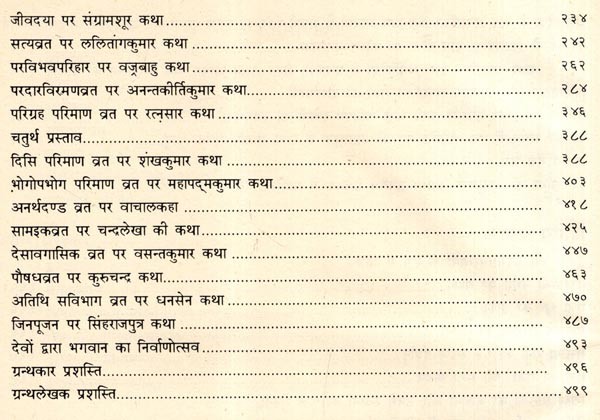 जीवदया पर संग्रामशूर कथा................२३४
सत्यव्रत पर ललितांगकुमार कथा................२४२
परविभवपरिहार पर वज्रबाहु कथा................२६२
परदारविरमणव्रत पर अनन्तकीर्तिकुमार कथा................२८४
परिग्रह परिमाण व्रत पर रत्नसार कथा................३४६
चतुर्थ प्रस्ताव................३८८
दिसि परिमाण व्रत पर शंखकुमार कथा................३८८
भोगोपभोग परिमाण व्रत पर महापद्मकुमार कथा................४०३
अनर्थदण्ड व्रत पर वाचालकहा................४१८
सामइकव्रत पर चन्द्रलेखा की कथा................४२५
देसावगासिक व्रत पर वसन्तकुमार कथा................४४७
पौषधव्रत पर कुरुचन्द्र कथा................४६३
अतिथि सविभाग व्रत पर धनसेन कथा................४७०
जिनपूजन पर सिंहराजपुत्र कथा................४८७
देवों द्वारा भगवान का निर्वाणोत्सव................४९३
ग्रन्थकार प्रशस्ति................४९६
ग्रन्थलेखक प्रशस्ति................४९९